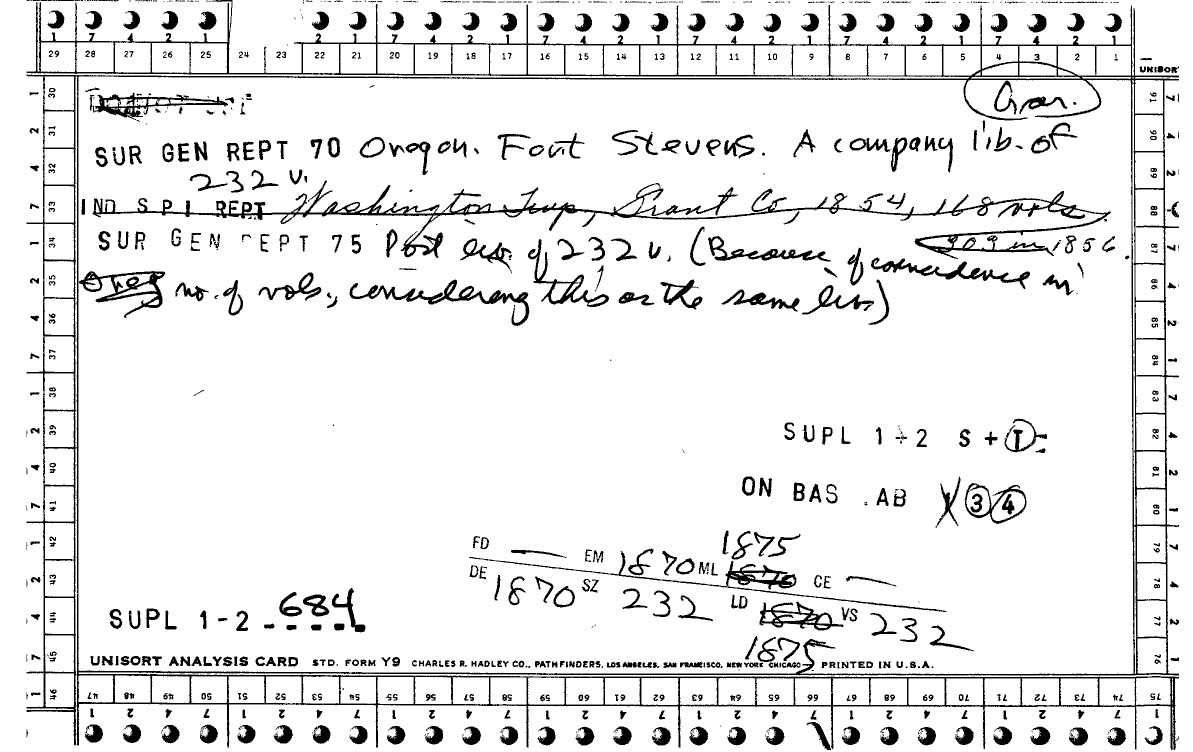 7 4 2 1 2 1 7 4 2 1 7 4 2 1 7 4 2 1 7 4 2 1 7 4 2 1
29 28 27 26 25 24 23 22 21 20 19 18 17 16 15 14 13 12 11 10 9 8 7 6 5 4 3 2 1
UNISORT
Gran.
SUR GEN REPT 70 Oregon. Fort Stevens. A company lib. of
232 v.
IND S P I REPT Washington Twp, Grant Co, 1854, 168 vols.
SUR GEN REPT 75 Post lib. of 232 v. (Because of coincidence in
309 in 1856.
Oreg no. of vols., considering this as the same lib.)
SUPL 1-2 S + T
ON BAS . AB 1 3 4
FD — EM 1870 ML 1870 1875 CE —
DE 1870 SZ 232 LD 1870 1875 VS 232
SUPL 1-2 684
UNISORT ANALYSIS CARD STD. FORM Y9 CHARLES R. HADLEY CO., PATHFINDERS, LOS ANGELES, SAN FRANCISCO, NEW YORK CHICAGO PRINTED IN U.S.A.
47 48 49 50 51 52 53 54 55 56 57 58 59 60 61 62 63 64 65 66 67 68 69 70 71 72 73 74 75
1 2 4 7 1 2 4 7 1 2 4 7 1 2 4 7 1 2 4 7 1 2 4 7 1 2 4 7 1